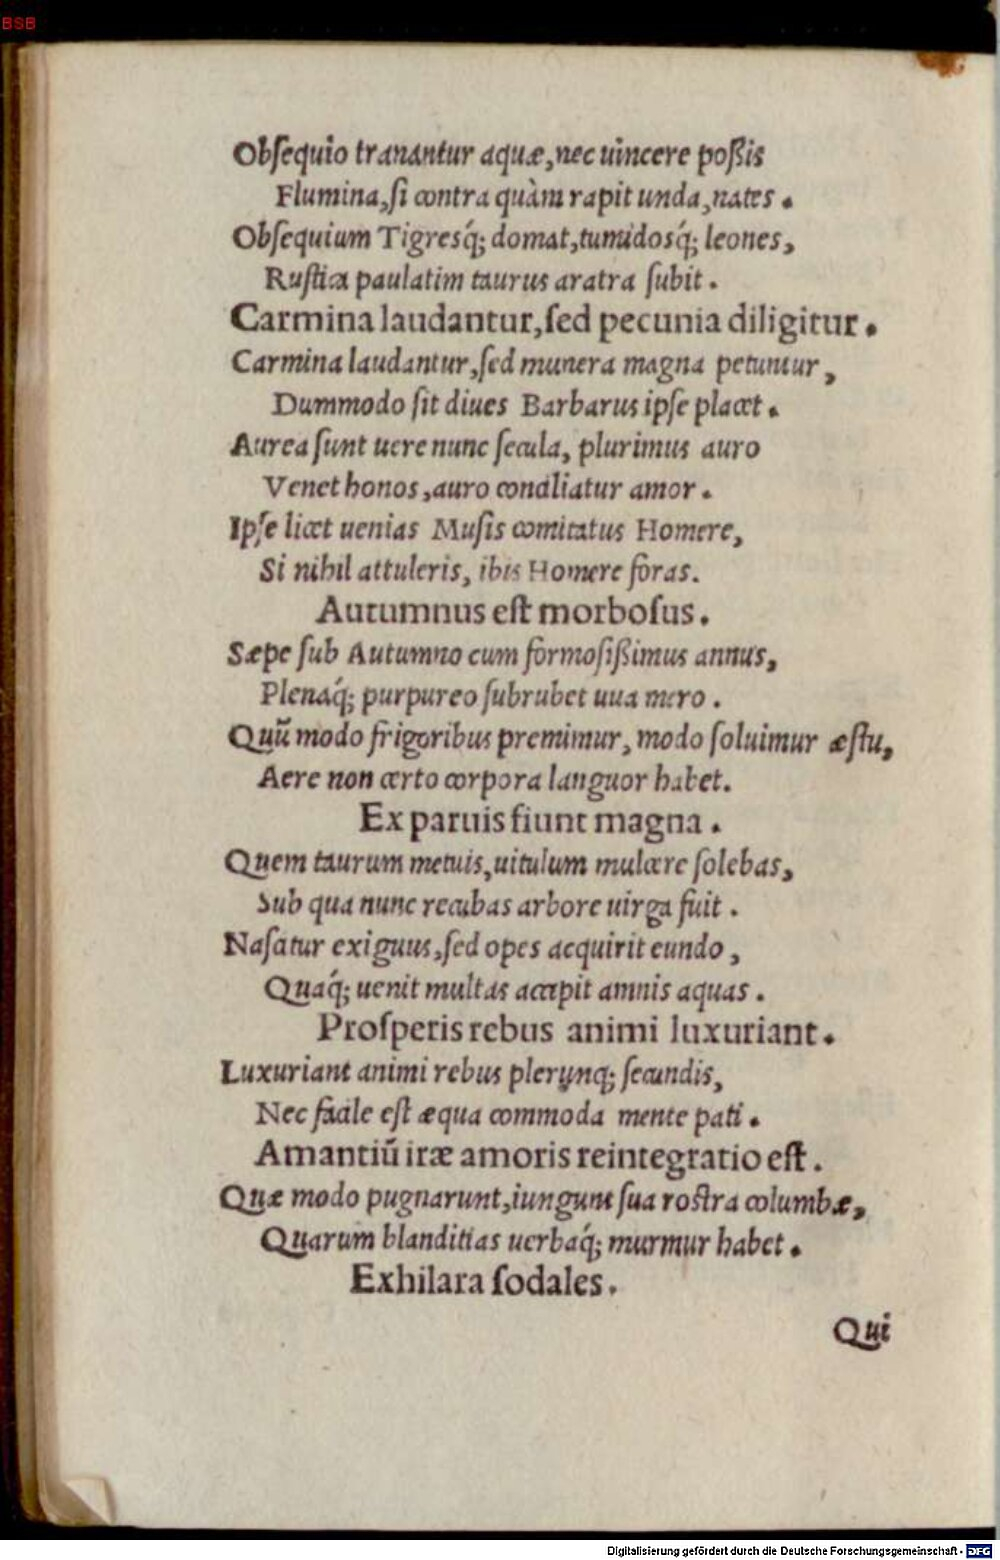 BSB
Obſequio tranantur aquæ, nec uincere poßis
Flumina, ſi contra quàm rapit unda, nates.
Obſequium Tigresq́; domat, tumidosq́; leones,
Ruſtica paulatim taurus aratra ſubit.
Carmina laudantur, ſed pecunia diligitur.
Carmina laudantur, ſed munera magna petuntur,
Dummodo ſit diues Barbarus ipſe placet.
Aurea ſunt uere nunc ſecula, plurimus auro
Venet honos, auro conciliatur amor.
Ipſe licet uenias Muſis comitatus Homere,
Si nihil attuleris, ibis Homere foras.
Autumnus eſt morboſus.
Sæpe ſub Autumno cum formoſißimus annus,
Plenaq́; purpureo ſubrubet uua mero.
Quũ modo frigoribus premimur, modo ſoluimur æſtu,
Aere non certo corpora languor habet.
Ex paruis fiunt magna.
Quem taurum metuis, uitulum mulcere ſolebas,
Sub qua nunc recubas arbore uirga fuit.
Naſcatur exiguus, ſed opes acquirit eundo,
Quaq́; uenit multas accipit amnis aquas.
Proſperis rebus animi luxuriant.
Luxuriant animi rebus plerunq; ſecundis,
Nec facile eſt æqua commoda mente pati.
Amantiũ iræ amoris reintegratio eſt.
Quæ modo pugnarunt, iungunt ſua roſtra columbæ,
Quarum blanditias uerbaq́; murmur habet.
Exhilara ſodales.
Qui
Digitalisierung gefördert durch die Deutsche Forschungsgemeinschaft - DFG